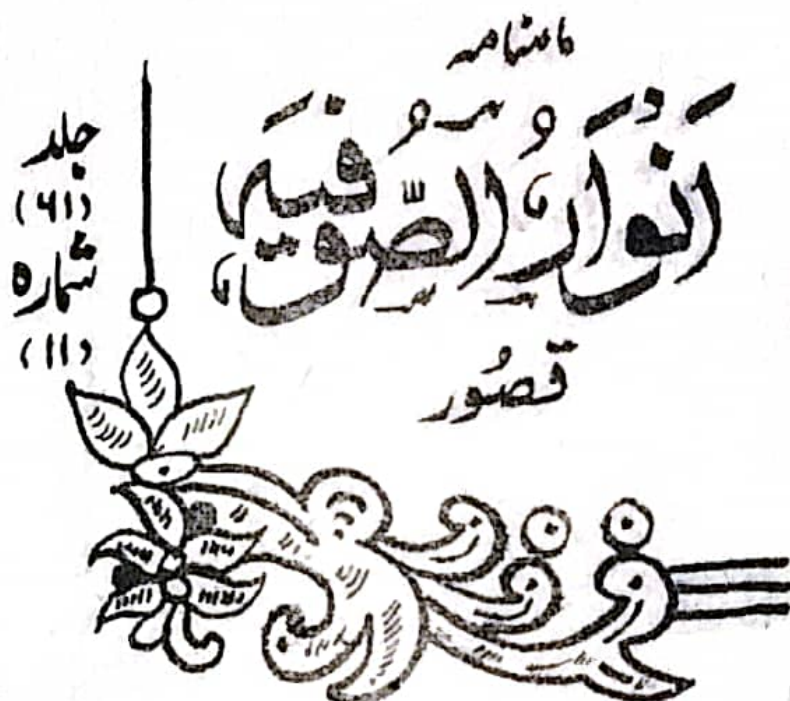 ماہنامہ
اَنوَارُ الصُّوفِیَہ
قصُور
جلد
(۶۱)
شمارہ
(۱۱)